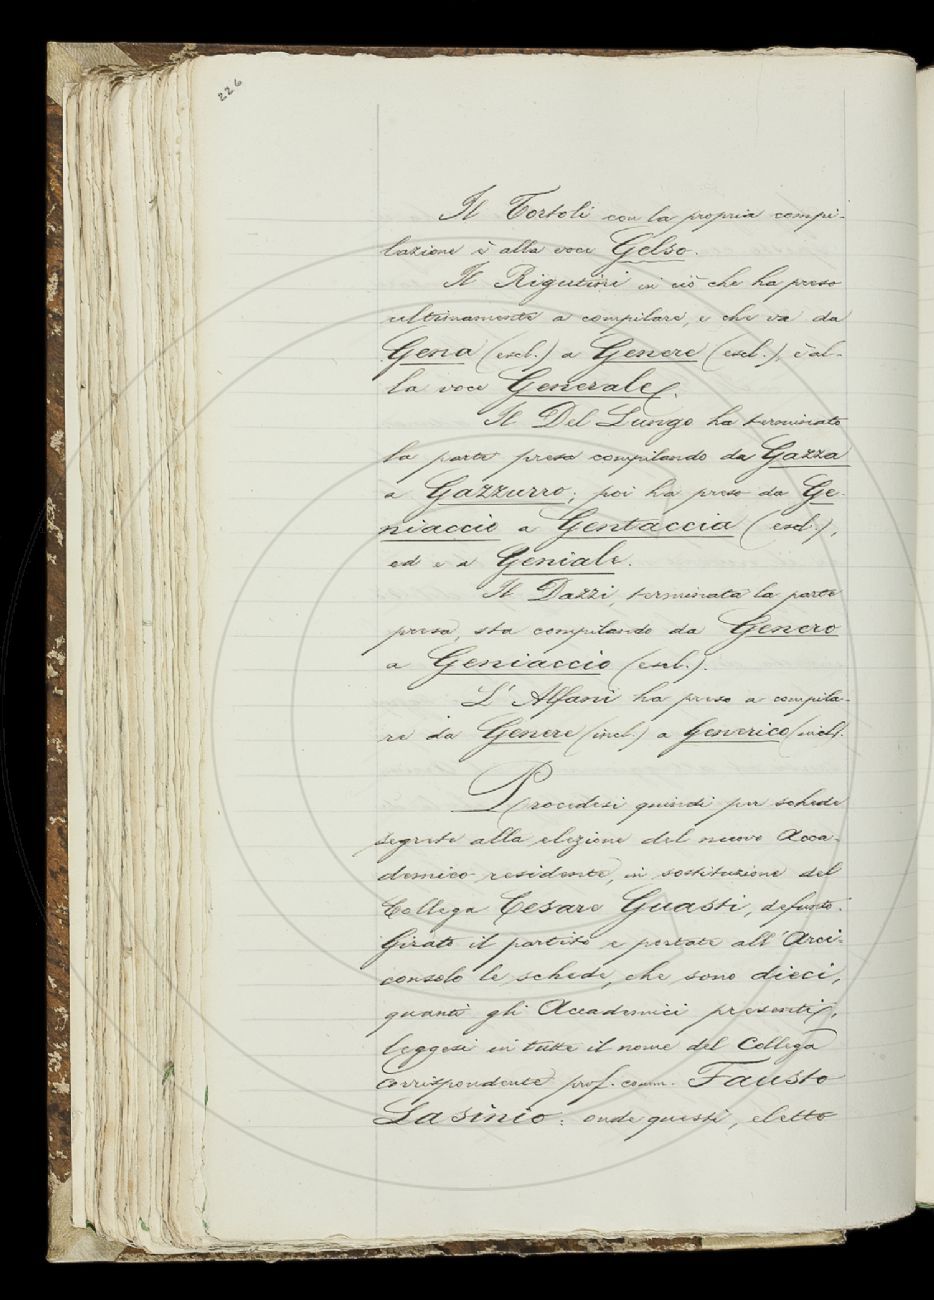 226
Il Tortoli con la propria compi-
lazione è alla voce Gelso.
Il Rigutini in ciò che ha preso
ultimamente a compilare, e che va da
Gena (escl.) a Genere (escl.), è al-
la voce Generale.
Il Del Lungo ha terminato
la parte presa compilando da Gazza
a Gazzurro; poi ha preso da Ge-
niaccio a Gentaccia (escl.),
ed e a Geniale.
Il Dazzi, terminata la parte
presa, sta compilando da Genero
a Geniaccio (escl.).
L'Alfani ha preso a compila-
re da Genere (incl.) a Generico (incl.).
Procedesi quindi per schede
segrete alla elezione del nuovo Acca-
demico residente, in sostituzione del
Collega Cesare Guasti, defunto.
Girato il partito e portate all'Arci-
consolo le schede, che sono dieci,
quanti gli Accademici presenti,
leggesi in tutte il nome del Collega
Corrispondente prof. comm. Fausto
Lasinio: onde questi, eletto